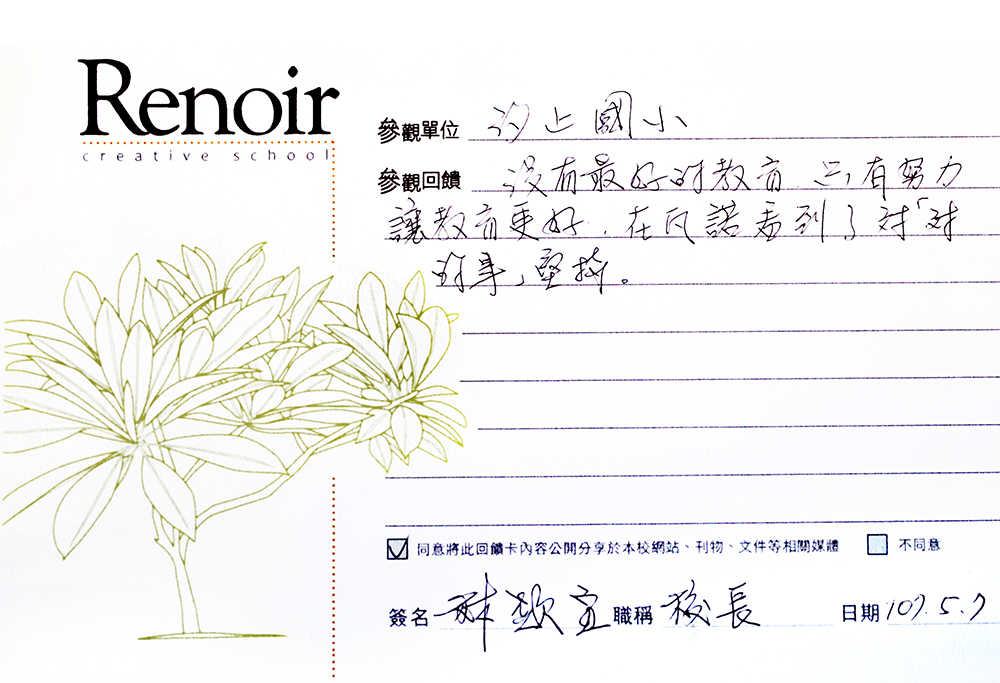 Renoir
creative school
參觀單位 汐止國小
參觀回饋 沒有最好的教育 只有努力
讓教育更好.在凡諾看到了對「對
的事」堅持。
☑ 同意將此回饋卡內容公開分享於本校網站、刊物、文件等相關媒體 ☐ 不同意
簽名 職稱 校長 日期 107.5.7